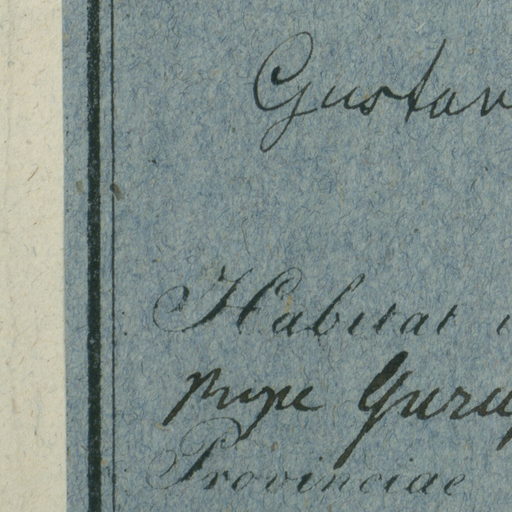 Gustav
Habitat
prope Gurup
Provinciae